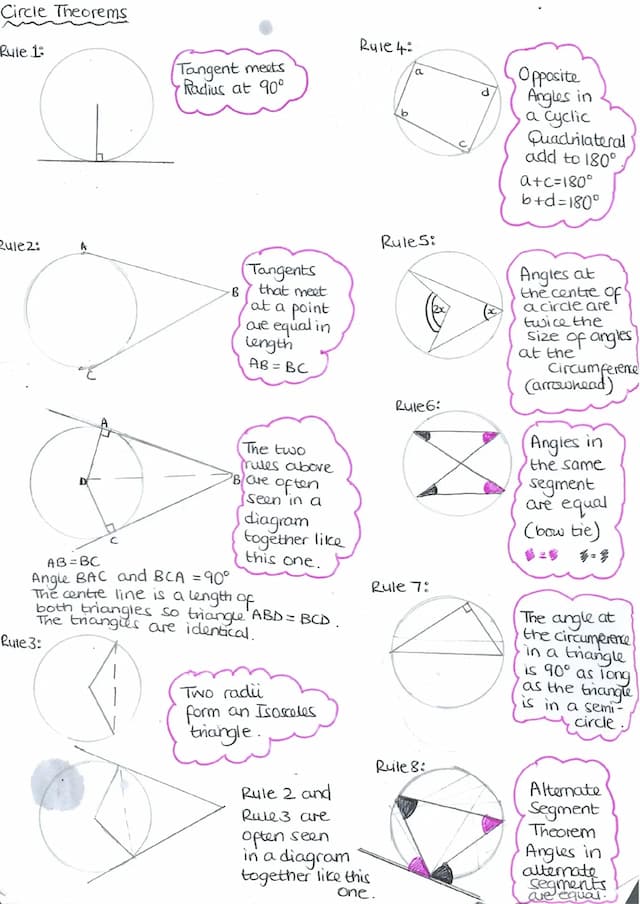 Circle Theorems
Rule 1:
Tangent meets
Radius at 90°
Rule 2:
A
B
C
Tangents
that meet
at a point
are equal in
length
AB = BC
A
B
C
D
The two
rules above
are often
seen in a
diagram
together like
this one.
AB=BC
Angle BAC and BCA = 90°
The centre line is a length of
both triangles so triangle ABD = BCD.
The triangles are identical.
Rule 3:
Two radii
form an Isosceles
triangle.
Rule 2 and
Rule 3 are
often seen
in a diagram
together like this
one.
Rule 4:
a
d
b
c
Opposite
Angles in
a Cyclic
Quadrilateral
add to 180°
a+c=180°
b+d=180°
Rule 5:
2x
x
Angles at
the centre of
a circle are
twice the
size of angles
at the
Circumference
(arrowhead)
Rule 6:
Angles in
the same
segment
are equal
(bow tie)
= =
Rule 7:
The angle at
the circumference
in a triangle
is 90° as long
as the triangle
is in a semi-
circle.
Rule 8:
Alternate
Segment
Theorem
Angles in
alternate
segments
are equal.